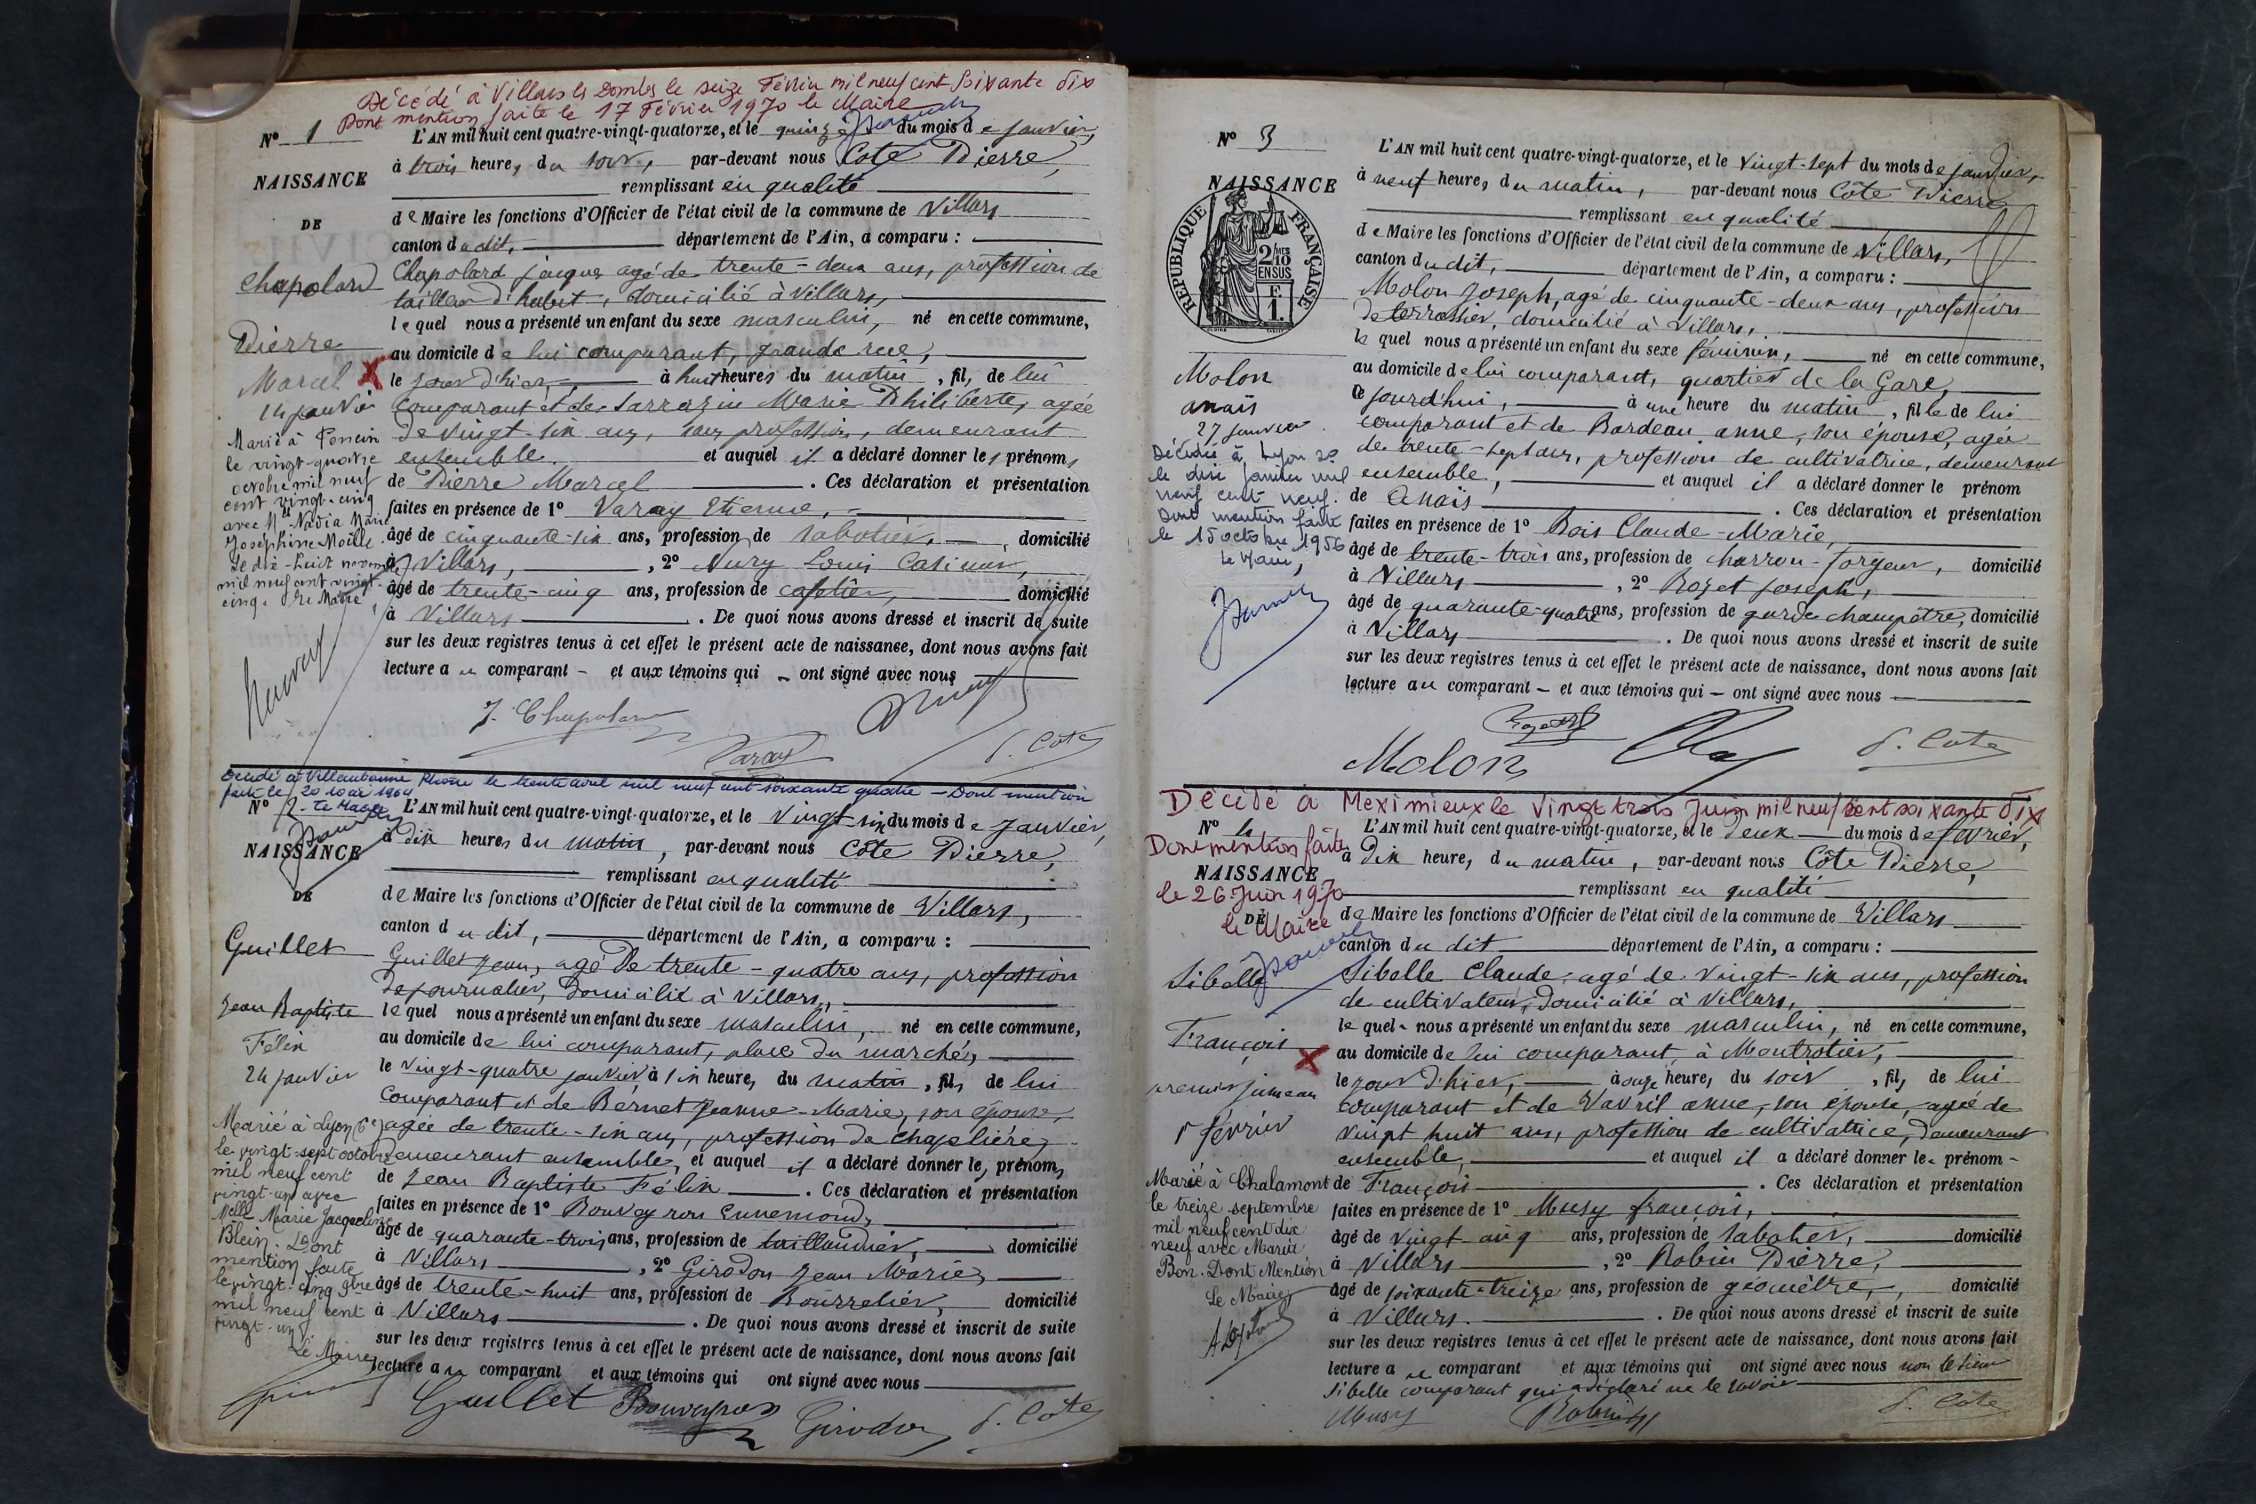 Décédé à Villars les Dombes le seize Février mil neuf cent soixante dix
Dont mention faite le 17 Février 1970 le Maire
N° 1
NAISSANCE
DE
Chapolard
Pierre
Marcel X
14 janvier
Marié à Poncin
le vingt-quatre
octobre mil neuf
cent vingt-cinq
avec Mlle Nadia Marie
Joséphine Moille
le dix-huit novembre
mil neuf cent vingt-
cinq. Le Maire,
L'AN mil huit cent quatre-vingt-quatorze, et le quinze du mois de janvier,
à trois heures du soir, par-devant nous Côte Pierre,
remplissant en qualité
de Maire les fonctions d'Officier de l'état civil de la commune de Villars
canton du dit, département de l'Ain, a comparu :
Chapolard Jacques agé de trente-deux ans, profession de
tailleur d'habit, domicilié à Villars,
lequel nous a présenté un enfant du sexe masculin, né en cette commune,
au domicile de lui comparant, grande rue,
le jour d'hier, à huit heures du matin, fils de lui
comparant et de Sarrazin Marie Philiberte, agée
de vingt-six ans, sans profession, demeurant
ensemble et auquel il a déclaré donner les prénoms
de Pierre Marcel. Ces déclaration et présentation
faites en présence de 1° Varay Etienne,
âgé de cinquante-six ans, profession de sabotier, domicilié
à Villars, , 2° Nury Louis Casimir,
âgé de trente-cinq ans, profession de cafetier, domicilié
à Villars. De quoi nous avons dressé et inscrit de suite
sur les deux registres tenus à cet effet le présent acte de naissance, dont nous avons fait
lecture au comparant et aux témoins qui ont signé avec nous
J. Chapolard
Varay
P. Côte
Décédé à Villeurbanne Rhône le trente avril mil neuf cent soixante quatre - Dont mention
faite le 20 mai 1964
N° 2 Le Maire
NAISSANCE
DE
Guillet
Jean Baptiste
Félix
24 janvier
Marié à Lyon (6e)
le vingt-sept octobre
mil neuf cent
vingt-un avec
Melle Marie Jacqueline
Blein. Dont
mention faite
le vingt-cinq 9bre
mil neuf cent
vingt-un
Le Maire
L'AN mil huit cent quatre-vingt-quatorze, et le vingt-six du mois de janvier,
à dix heures du matin, par-devant nous Côte Pierre,
remplissant en qualité
de Maire les fonctions d'Officier de l'état civil de la commune de Villars,
canton du dit, département de l'Ain, a comparu :
Guillet Jean, agé de trente-quatre ans, profession
de journalier, domicilié à Villars,
lequel nous a présenté un enfant du sexe masculin, né en cette commune,
au domicile de lui comparant, place du marché,
le vingt-quatre janvier à six heures du matin, fils de lui
comparant et de Bernet Jeanne-Marie, son épouse,
agée de trente-six ans, profession de chapelière,
demeurant ensemble, et auquel il a déclaré donner les prénoms
de Jean Baptiste Félix. Ces déclaration et présentation
faites en présence de 1° Bouveyron Ennemond,
âgé de quarante-trois ans, profession de taillandier, domicilié
à Villars, 2° Girodon Jean Marie,
âgé de trente-huit ans, profession de Bourrelier, domicilié
à Villars. De quoi nous avons dressé et inscrit de suite
sur les deux registres tenus à cet effet le présent acte de naissance, dont nous avons fait
lecture au comparant et aux témoins qui ont signé avec nous
Guillet Bouveyron Girodon P. Côte
N° 3
NAISSANCE
RÉPUBLIQUE FRANÇAISE
2/10 EN SUS
F. 1.
Molon
anaïs
27 janvier
Décédée à Lyon 2e
le dix janvier mil
neuf cent neuf.
Dont mention faite
le 15 octobre 1956
Le Maire,
L'AN mil huit cent quatre-vingt-quatorze, et le vingt-sept du mois de janvier,
à neuf heures du matin, par-devant nous Côte Pierre
remplissant en qualité
de Maire les fonctions d'Officier de l'état civil de la commune de Villars,
canton du dit, département de l'Ain, a comparu :
Molon Joseph, agé de cinquante-deux ans, profession
de terrassier, domicilié à Villars,
lequel nous a présenté un enfant du sexe féminin, né en cette commune,
au domicile de lui comparant, quartier de la Gare,
ce jourd'hui, à une heure du matin, fille de lui
comparant et de Bardeau anne, son épouse, agée
de trente-sept ans, profession de cultivatrice, demeurant
ensemble, et auquel il a déclaré donner le prénom
de Anaïs. Ces déclaration et présentation
faites en présence de 1° Bois Claude-Marie,
âgé de trente-trois ans, profession de charron-forgeur, domicilié
à Villars, 2° Rozet Joseph,
âgé de quarante-quatre ans, profession de garde champêtre, domicilié
à Villars. De quoi nous avons dressé et inscrit de suite
sur les deux registres tenus à cet effet le présent acte de naissance, dont nous avons fait
lecture au comparant et aux témoins qui ont signé avec nous
Rozet
Molon P. Côte
Décédé à Meximieux le Vingt trois Juin mil neuf cent soixante dix
N° 4
Dont mention faite
NAISSANCE
le 26 Juin 1970
DE
le Maire
Sibelle
François X
premier jumeau
1er février
Marié à Chalamont
le treize septembre
mil neuf cent dix
neuf avec Marie
Bon. Dont Mention
Le Maire
L'AN mil huit cent quatre-vingt-quatorze, et le deux du mois de février,
à dix heures du matin, par-devant nous Côte Pierre,
remplissant en qualité
de Maire les fonctions d'Officier de l'état civil de la commune de Villars
canton du dit département de l'Ain, a comparu :
Sibelle Claude, agé de vingt-six ans, profession
de cultivateur, domicilié à Villars,
lequel nous a présenté un enfant du sexe masculin, né en cette commune,
au domicile de lui comparant, à Montrotier,
le jour d'hier, à onze heures du soir, fils de lui
comparant et de Vavril anne, son épouse, agée de
vingt huit ans, profession de cultivatrice, demeurant
ensemble, et auquel il a déclaré donner le prénom
de François. Ces déclaration et présentation
faites en présence de 1° Musy françois,
âgé de vingt-cinq ans, profession de sabotier, domicilié
à Villars, 2° Robin Pierre,
âgé de soixante-treize ans, profession de géomètre, domicilié
à Villars. De quoi nous avons dressé et inscrit de suite
sur les deux registres tenus à cet effet le présent acte de naissance, dont nous avons fait
lecture au comparant et aux témoins qui ont signé avec nous non le sieur
Sibelle comparant qui a déclaré ne le savoir
Musy Robin P. Côte